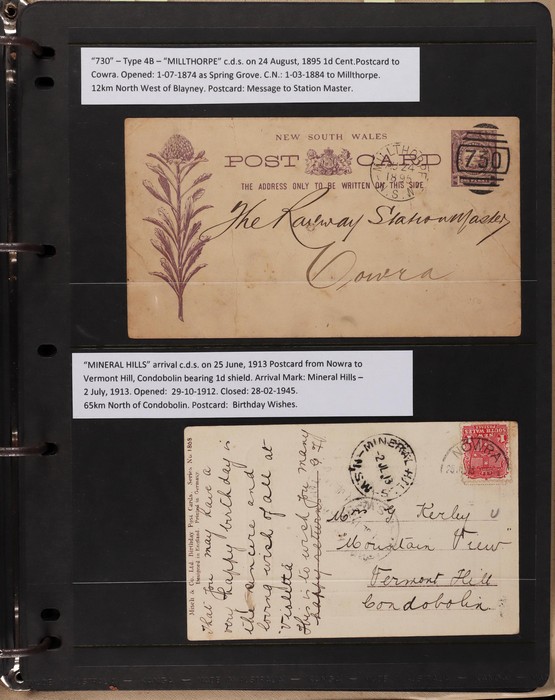 "730" – Type 4B – "MILLTHORPE" c.d.s. on 24 August, 1895 1d Cent.Postcard to
Cowra. Opened: 1-07-1874 as Spring Grove. C.N.: 1-03-1884 to Millthorpe.
12km North West of Blayney. Postcard: Message to Station Master.
NEW SOUTH WALES
POST CARD
THE ADDRESS ONLY TO BE WRITTEN ON THIS SIDE
730
The Railway Station Master
Cowra
"MINERAL HILLS" arrival c.d.s. on 25 June, 1913 Postcard from Nowra to
Vermont Hill, Condobolin bearing 1d shield. Arrival Mark: Mineral Hills –
2 July, 1913. Opened: 29-10-1912. Closed: 28-02-1945.
65km North of Condobolin. Postcard: Birthday Wishes.
Misch & Co. Ltd. Birthday Post Cards. Series No 1868
Designed in England. Printed in Germany
That you may have a
very happy birthday is
the sincere and
loving wish of all at
Violetta
This is to wish you many
happy returns
MINERAL HILLS
N.S.W
NOWRA
G Kerley
"Mountain View"
Vermont Hill
Condobolin